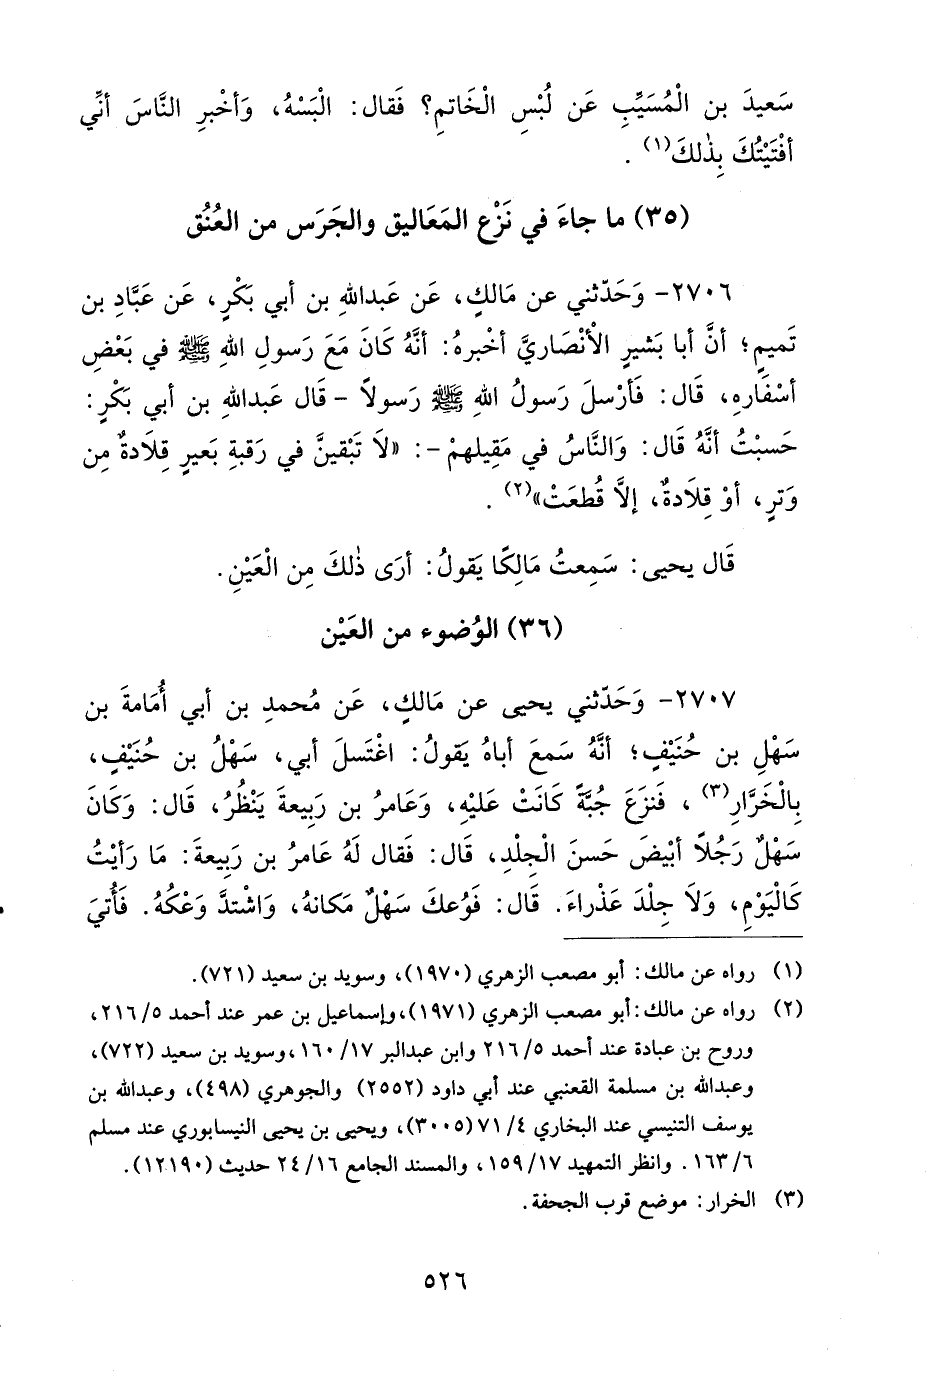 سَعيدَ بن الْمُسَيِّبِ عَن لُبْسِ الْخَاتمِ؟ فَقال: الْبَسْهُ، وَأخْبرِ النَّاسَ أنِّي
أفْتَيْتُكَ بِذٰلكَ(١) .
(٣٥) ما جاءَ في نَزْع المَعَاليق والجَرَس من العُنُق
٢٧٠٦- وَحَدّثني عن مَالكٍ، عَن عَبدالله بن أبي بَكْرٍ، عَن عَبَّادِ بن
تَميمٍ؛ أنَّ أبا بَشيرٍ الْأنْصَاريَّ أخْبرهُ: أنَّهُ كَانَ مَعَ رَسولِ اللهِ ﷺ في بَعْضِ
أسْفَاره، قَال: فَأرْسلَ رَسولُ اللهِ ﷺ رَسولاً -قَال عَبدالله بن أبي بَكْرٍ:
حَسبْتُ أنَّهُ قَال: وَالنَّاسُ في مَقِيلهمْ-: «لاَ تَبْقينَّ في رَقبةِ بَعيرٍ قِلَادةٌ مِن
وَترٍ، أوْ قِلَادةٌ، إلاَّ قُطعَتْ»(٢) .
قَال يحيى: سَمِعتُ مَالِكًا يَقولُ: أرَى ذٰلكَ مِن الْعَيْنِ.
(٣٦) الوُضوء من العَيْن
٢٧٠٧- وَحَدّثني يحيى عن مَالكٍ، عَن مُحمدِ بن أبي أُمَامةَ بن
سَهْلِ بن حُنَيْفٍ؛ أنَّهُ سَمعَ أباهُ يَقولُ: اغْتَسلَ أبي، سَهْلُ بن حُنَيْفٍ،
بِالْخَرَّارِ(٣) ، فَنزَعَ جُبَّةً كَانَتْ عَليْه، وَعَامرُ بن رَبِيعةَ يَنْظُرُ، قَال: وَكَانَ
سَهْلٌ رَجُلاً أبْيضَ حَسنَ الْجِلْدِ، قَال: فَقال لَهُ عَامرُ بن رَبِيعةَ: مَا رَأيْتُ
كَالْيَوْمِ، وَلاَ جِلْدَ عَذْراءَ. قَال: فَوُعكَ سَهْلٌ مَكانهُ، وَاشْتدَّ وَعْكهُ. فَأُتيَ
(١) رواه عن مالك: أبو مصعب الزهري (١٩٧٠)، وسويد بن سعيد (٧٢١).
(٢) رواه عن مالك: أبو مصعب الزهري (١٩٧١)، وإسماعيل بن عمر عند أحمد ٢١٦/٥،
وروح بن عبادة عند أحمد ٢١٦/٥ وابن عبدالبر ١٦٠/١٧، وسويد بن سعيد (٧٢٢)،
وعبدالله بن مسلمة القعنبي عند أبي داود (٢٥٥٢) والجوهري (٤٩٨)، وعبدالله بن
يوسف التنيسي عند البخاري ٧١/٤ (٣٠٠٥)، ويحيى بن يحيى النيسابوري عند مسلم
١٦٣/٦. وانظر التمهيد ١٥٩/١٧، والمسند الجامع ٢٤/١٦ حديث (١٢١٩٠).
(٣) الخرار: موضع قرب الجحفة.
٥٢٦